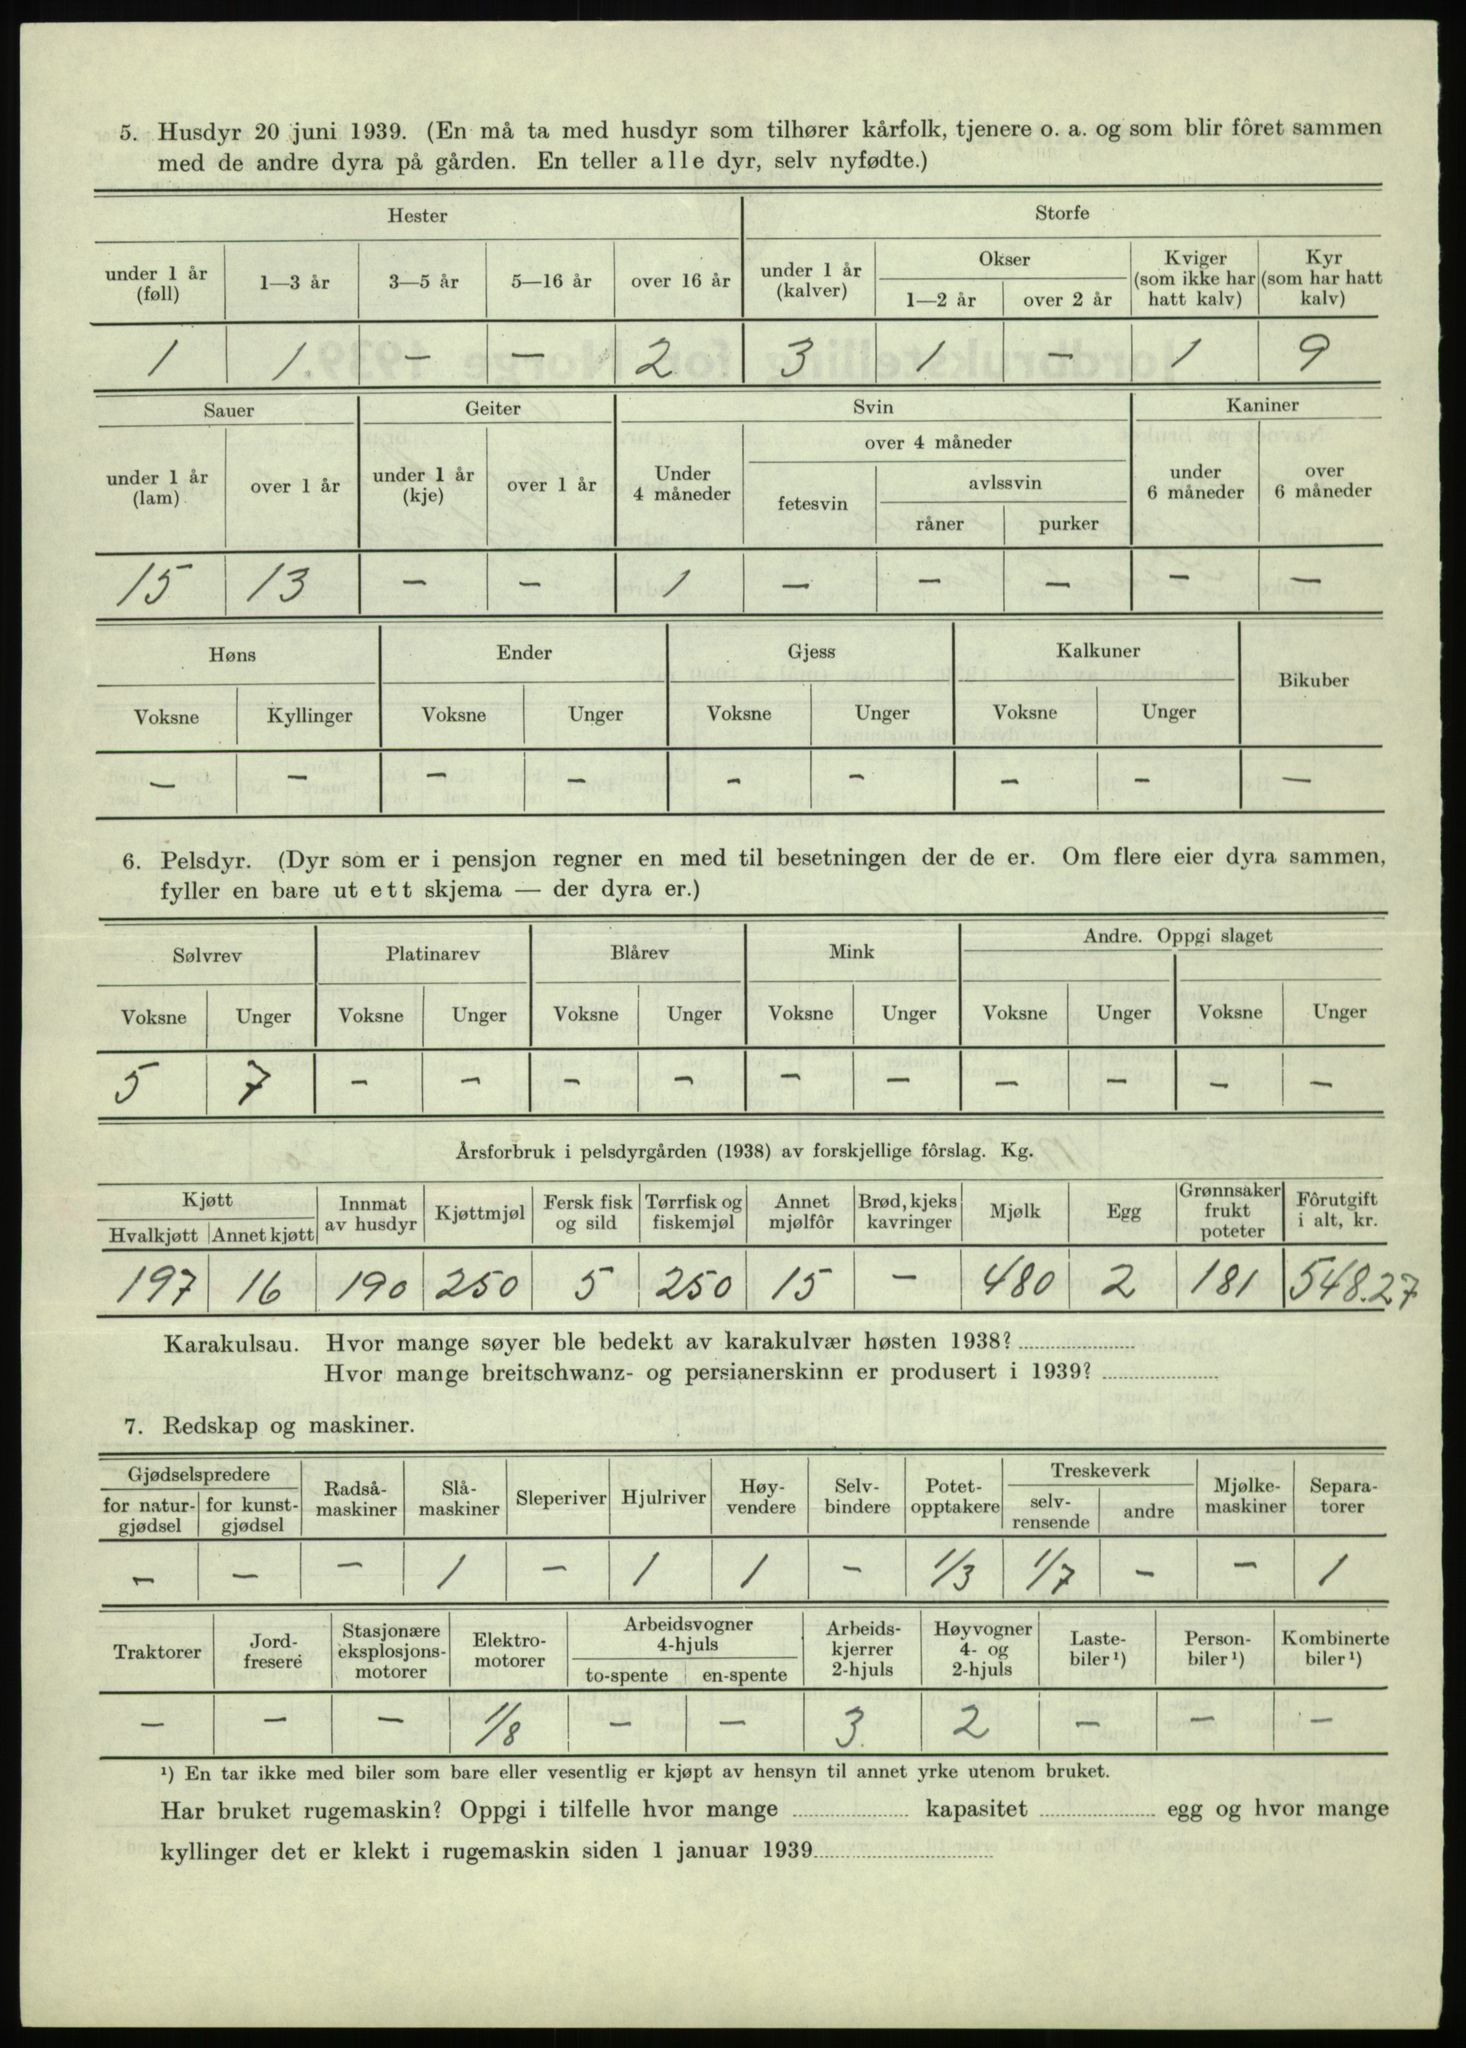 5. Husdyr 20 juni 1939. (En må ta med husdyr som tilhører kårfolk, tjenere o. a. og som blir fôret sammen
med de andre dyra på gården. En teller alle dyr, selv nyfødte.)
Hester Storfe
under 1 år (føll) 1—3 år 3—5 år 5—16 år over 16 år under 1 år (kalver) Okser 1—2 år over 2 år Kviger (som ikke har hatt kalv) Kyr (som har hatt kalv)
1 1 — — 2 3 1 — 1 9
Sauer Geiter Svin Kaniner
under 1 år (lam) over 1 år under 1 år (kje) over 1 år Under 4 måneder over 4 måneder fetesvin avlssvin råner purker under 6 måneder over 6 måneder
15 13 — — 1 — — — — —
Høns Ender Gjess Kalkuner Bikuber
Voksne Kyllinger Voksne Unger Voksne Unger Voksne Unger
— — — — — — — — —
6. Pelsdyr. (Dyr som er i pensjon regner en med til besetningen der de er. Om flere eier dyra sammen,
fyller en bare ut ett skjema — der dyra er.)
Sølvrev Platinarev Blårev Mink Andre. Oppgi slaget
Voksne Unger Voksne Unger Voksne Unger Voksne Unger Voksne Unger Voksne Unger
5 7 — — — — — — — — — —
Årsforbruk i pelsdyrgården (1938) av forskjellige fôrslag. Kg.
Kjøtt Hvalkjøtt Annet kjøtt Innmat av husdyr Kjøttmjøl Fersk fisk og sild Tørrfisk og fiskemjøl Annet mjølfôr Brød, kjeks kavringer Mjølk Egg Grønnsaker frukt poteter Fôrutgift i alt, kr.
197 16 190 250 5 250 15 — 480 2 181 548.27
Karakulsau. Hvor mange søyer ble bedekt av karakulvær høsten 1938?
Hvor mange breitschwanz- og persianerskinn er produsert i 1939?
7. Redskap og maskiner.
Gjødselspredere for natur-gjødsel for kunst-gjødsel Radså-maskiner Slå-maskiner Sleperiver Hjulriver Høy-vendere Selv-bindere Potet-opptakere Treskeverk selv-rensende andre Mjølke-maskiner Separa-torer
— — — 1 — 1 1 — 1/3 1/7 — — 1
Traktorer Jord-fresere Stasjonære eksplosjons-motorer Elektro-motorer Arbeidsvogner 4-hjuls to-spente en-spente Arbeids-kjerrer 2-hjuls Høyvogner 4- og 2-hjuls Laste-biler ¹) Person-biler ¹) Kombinerte biler ¹)
— — — 1/8 — — 3 2 — — —
¹) En tar ikke med biler som bare eller vesentlig er kjøpt av hensyn til annet yrke utenom bruket.
Har bruket rugemaskin? Oppgi i tilfelle hvor mange kapasitet egg og hvor mange
kyllinger det er klekt i rugemaskin siden 1 januar 1939